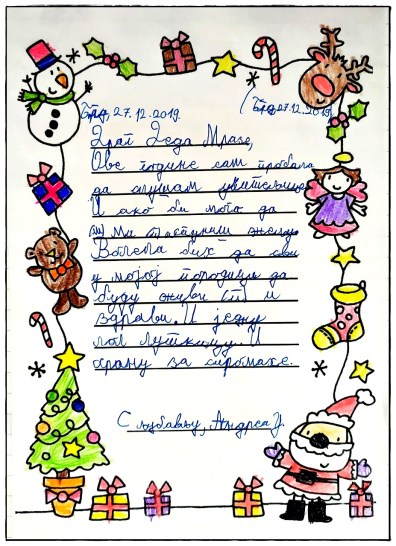 Бгд, 27.12.2019. Бгд 27.12.2019.
Драги Деда Мразе,
Ове године сам пробала
да слушам учитељицу.
И ако би мого да
ми испуниш жељу.
Волела бих да сви
у мојој породици да
буду живи и
здрави. И једну
лол луткицу. И
храну за сиромахе.
С љубављу, Андреа Ј.